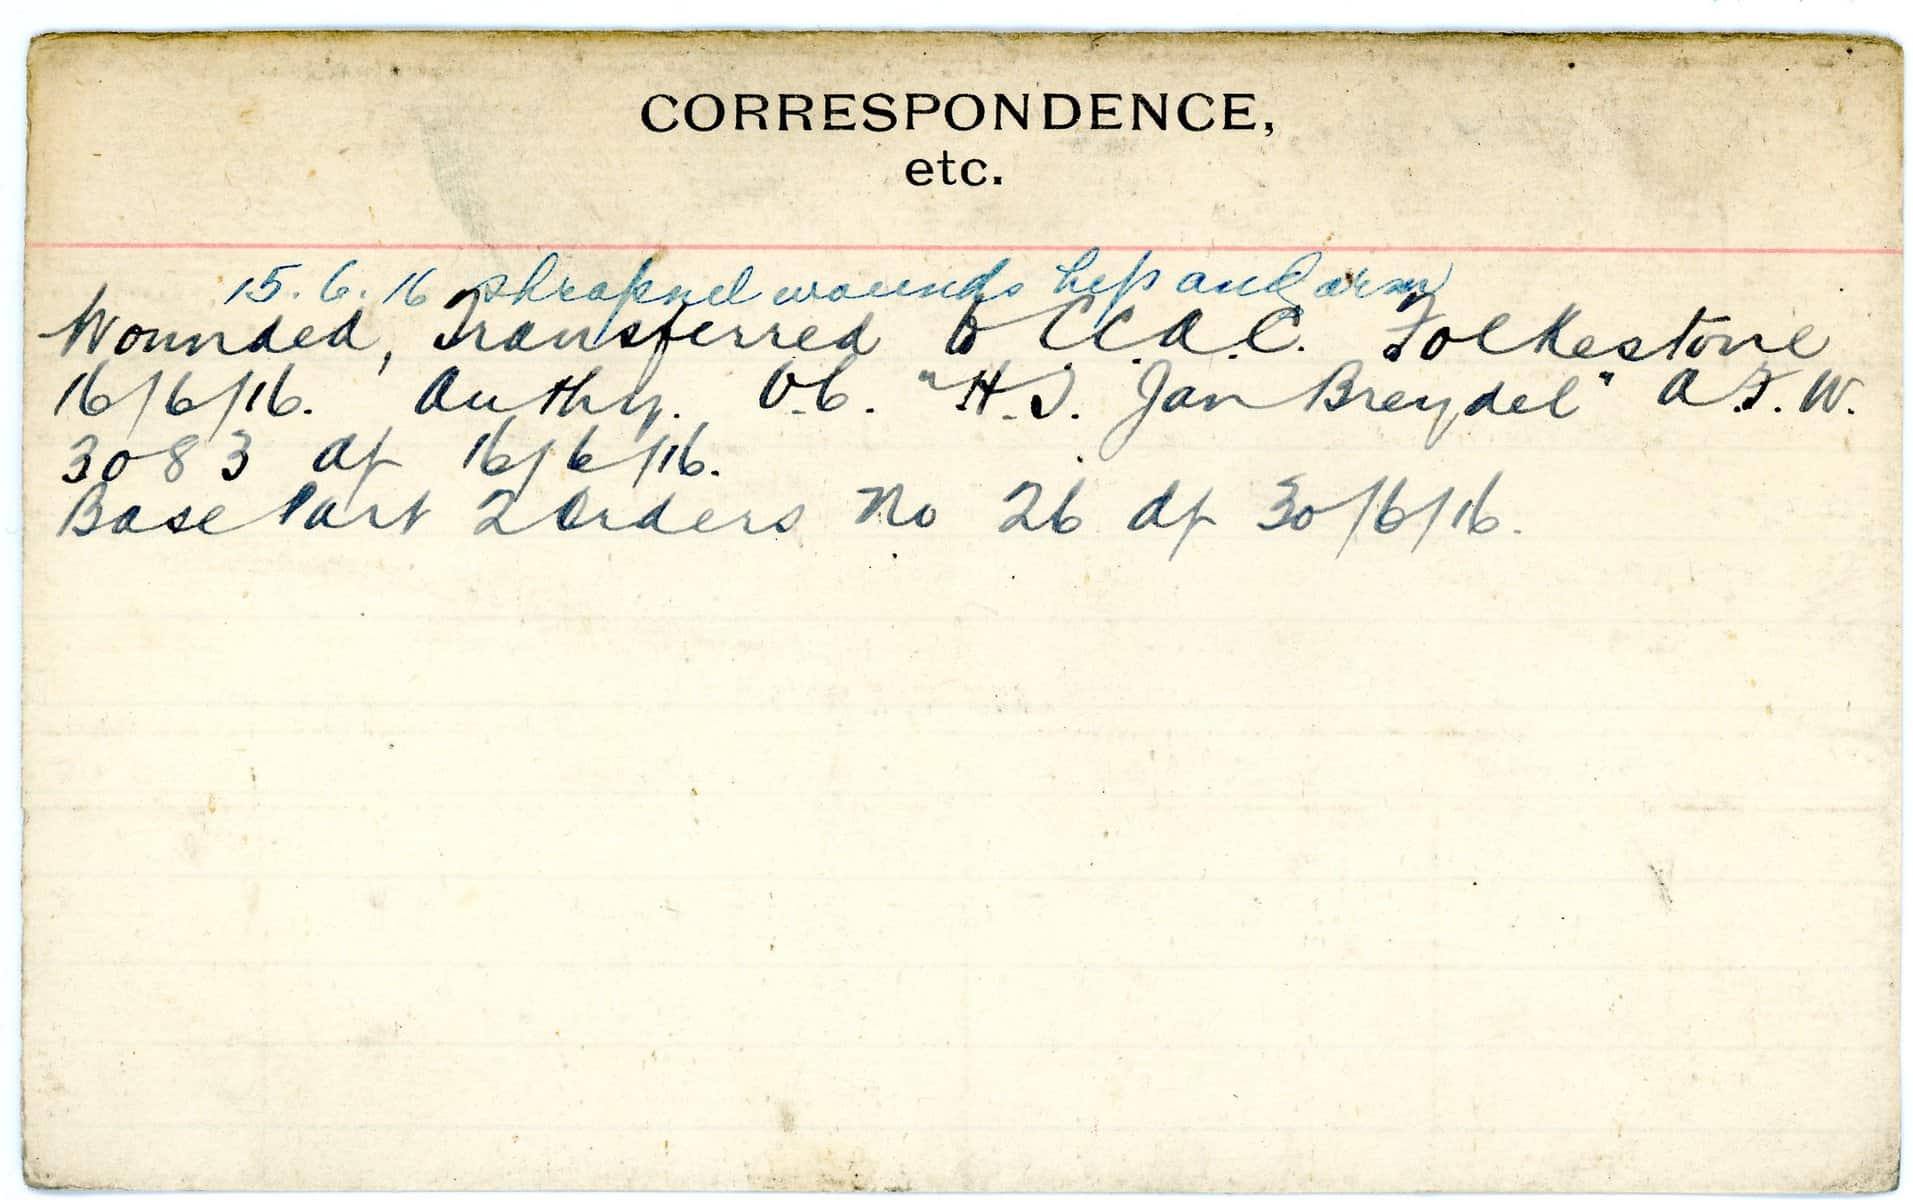 CORRESPONDENCE,
etc.
15.6.16 shrapnel wounds hip and arm
Wounded, Transferred to C.C.A.C. Folkestone
16/6/16. Authy. O.C. "H.S. Jan Breydel" A.F.W.
3083 df 16/6/16.
Base Part 2 Orders No 26 df 30/6/16.